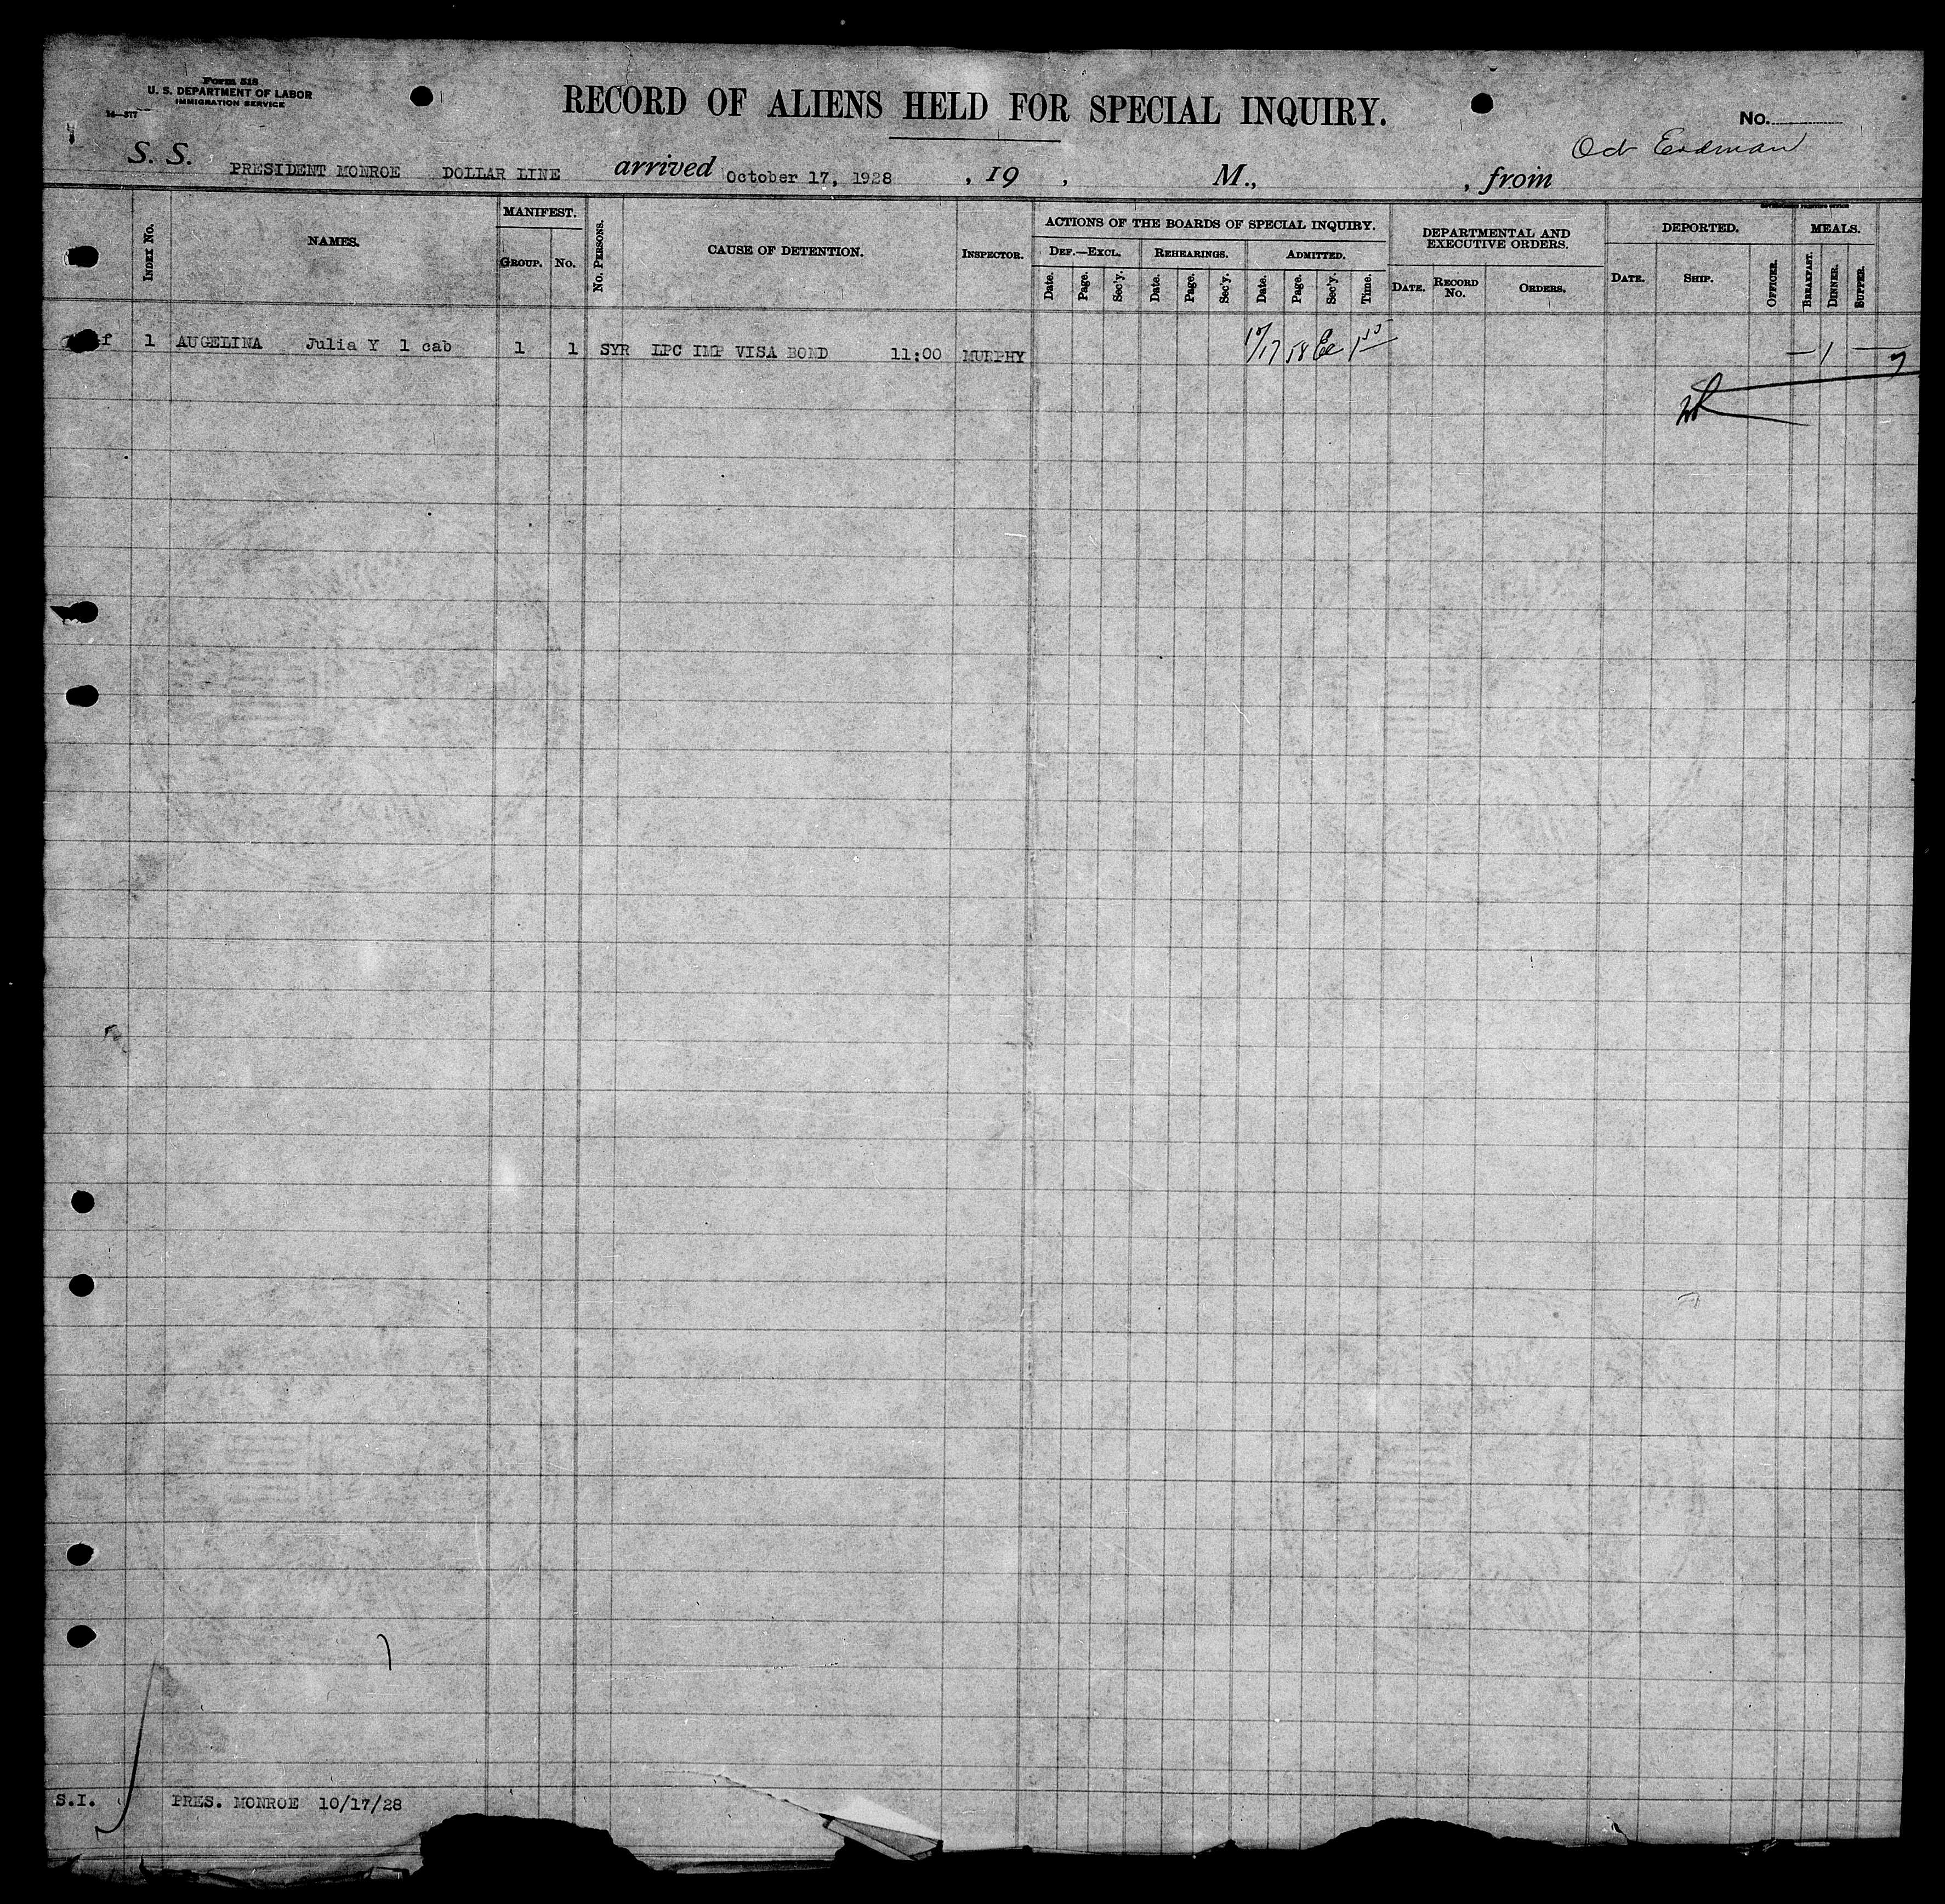 Form 518
U. S. DEPARTMENT OF LABOR
IMMIGRATION SERVICE
14—577
RECORD OF ALIENS HELD FOR SPECIAL INQUIRY.
No.
Erdman
S. S. PRESIDENT MONROE DOLLAR LINE arrived October 17, 1928 , 19 , M., , from
GOVERNMENT PRINTING OFFICE
INDEX No. NAMES. MANIFEST. GROUP. No. No. PERSONS. CAUSE OF DETENTION. INSPECTOR. ACTIONS OF THE BOARDS OF SPECIAL INQUIRY. DEF.—EXCL. Date. Page. Sec'y. REHEARINGS. Date. Page. Sec'y. ADMITTED. Date. Page. Sec'y. Time. DEPARTMENTAL AND EXECUTIVE ORDERS. DATE. RECORD No. ORDERS. DEPORTED. DATE. SHIP. OFFICER. MEALS. BREAKFAST. DINNER. SUPPER.
1 AUGELINA Julia Y 1 cab 1 1 SYR LPC IMP VISA BOND 11:00 MURPHY 10/17 58 Ee 1 15 — 1 —
S.I. PRES. MONROE 10/17/28